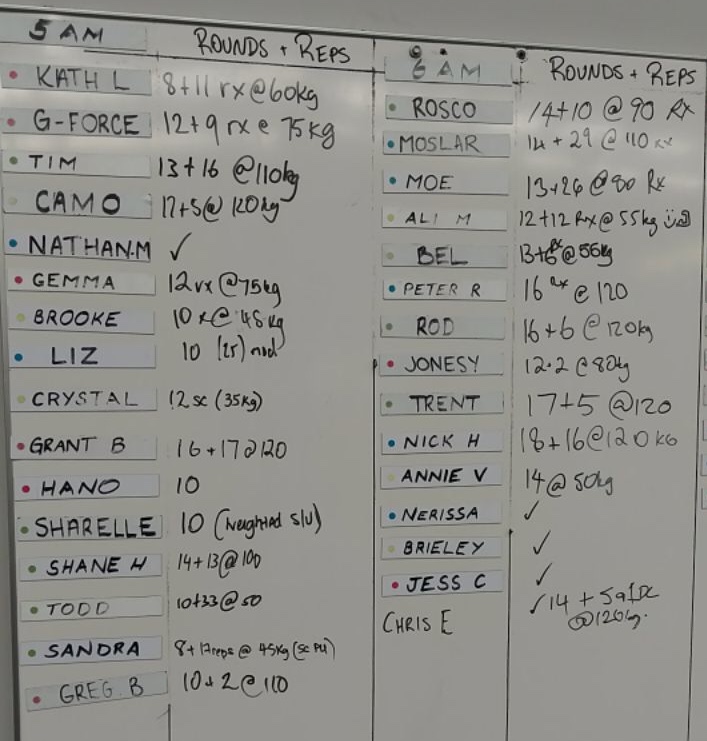 5 AM ROUNDS + REPS
KATH L 8+11 rx @ 60kg
G-FORCE 12+9 rx @ 75kg
TIM 13+16 @110kg
CAMO 17+5 @ 120kg
NATHAN.M ✓
GEMMA 12 rx @75kg
BROOKE 10 @ 45kg
LIZ 10 mod
CRYSTAL 12 sc (35kg)
GRANT B 16+17@120
HANO 10
SHARELLE 10 (weighted S/U)
SHANE H 14+13@100
TODD 10+33@50
SANDRA 8+12reps @ 45kg (sc PU)
GREG. B 10+2@110
6 AM ROUNDS + REPS
ROSCO 14+10 @ 90 RX
MOSLAR 14+29 @ 110 rx
MOE 13+26 @ 80 Rx
ALI M 12+12 Rx @ 55kg
BEL 13+6 @ 55kg
PETER R 16 rx @ 120
ROD 16+6 @ 120kg
JONESY 12+2 @ 80kg
TRENT 17+5 @120
NICK H 18+16@120KG
ANNIE V 14@50kg
NERISSA ✓
BRIELEY ✓
JESS C ✓
CHRIS E ✓ 14 +
@120kg.